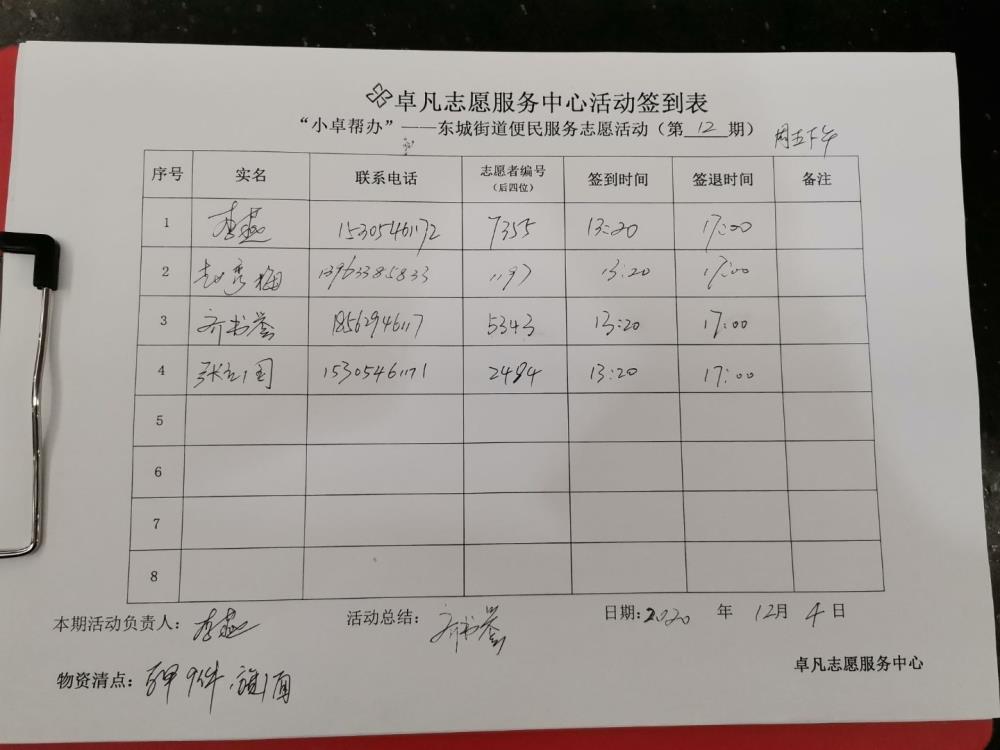 卓凡志愿服务中心活动签到表
“小卓帮办”——东城街道便民服务志愿活动（第 12 期） 周五下午
序号 实名 联系电话 志愿者编号（后四位） 签到时间 签退时间 备注
1 李燕 15305461172 7355 13:20 17:00
2 赵秀梅 13963385833 1197 13:20 17:00
3 齐书誉 18562946117 5343 13:20 17:00
4 张立国 15305461171 2484 13:20 17:00
5
6
7
8
本期活动负责人： 李燕 活动总结： 齐书誉 日期：2020 年 12月 4 日
物资清点： 9件 旗1面
卓凡志愿服务中心